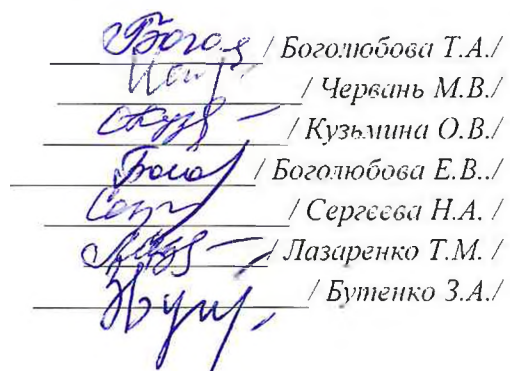 / Боголюбова Т.А./
/ Червань М.В./
/ Кузьмина О.В./
/ Боголюбова Е.В../
/ Сергеева Н.А. /
/ Лазаренко Т.М. /
/ Бутенко З.А./